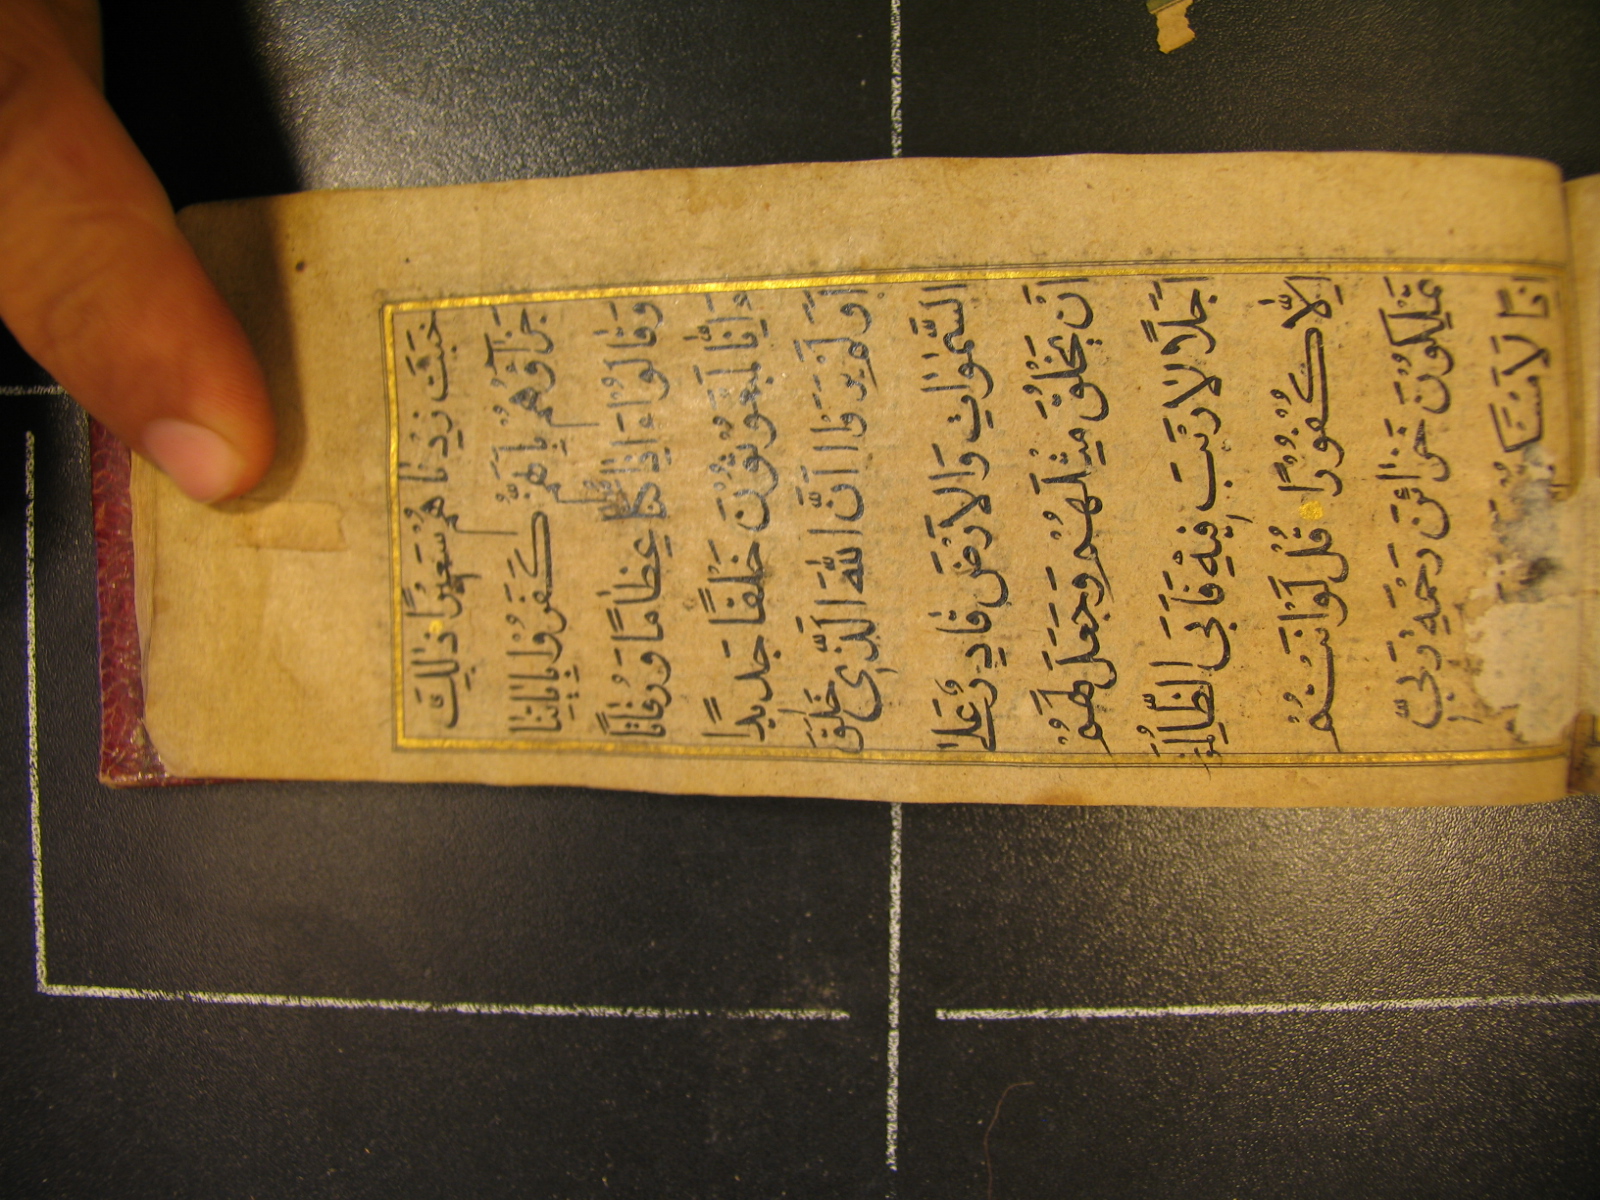 خَبَتْ زِدْنَاهُمْ سَعِيرًا ذٰلِكَ
جَزَآؤُهُمْ بِاَنَّهُمْ كَفَرُوْا بِاٰيَاتِنَا
وَقَالُوْا ءَاِذَا كُنَّا عِظَامًا وَرُفَاتًا
ءَاِنَّا لَمَبْعُوْثُوْنَ خَلْقًا جَدِيدًا
اَوَلَمْ يَرَوْا اَنَّ اللّٰهَ الَّذِيْ خَلَقَ
السَّمٰوَاتِ وَالْاَرْضَ قَادِرٌ عَلٰى
اَنْ يَخْلُقَ مِثْلَهُمْ وَجَعَلَ لَهُمْ
اَجَلًا لَا رَيْبَ فِيْهِ فَاَبَى الظَّالِمُوْنَ
اِلَّا كُفُوْرًا قُلْ لَوْ اَنْتُمْ
تَمْلِكُوْنَ خَزَائِنَ رَحْمَةِ رَبِّيْ
اِذًا لَاَمْسَكْتُمْ